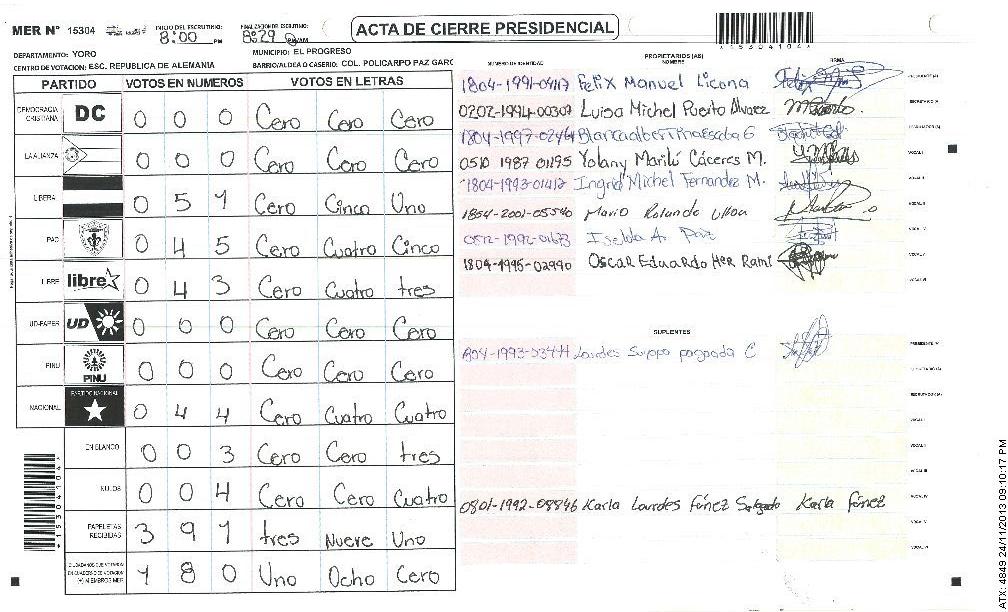 MER N° 15304 INICIO DEL ESCRUTINIO: 8:00 PM FINALIZACION DEL ESCRUTINIO: 8:29 PM/AM ACTA DE CIERRE PRESIDENCIAL
*15304104*
DEPARTAMENTO: YORO MUNICIPIO: EL PROGRESO
CENTRO DE VOTACION: ESC. REPUBLICA DE ALEMANIA BARRIO/ALDEA O CASERIO: COL. POLICARPO PAZ GARC
PARTIDO VOTOS EN NUMEROS VOTOS EN LETRAS
DEMOCRACIA CRISTIANA DC 0 0 0 Cero Cero Cero
LA ALIANZA 0 0 0 Cero Cero Cero
LIBERAL 0 5 1 Cero Cinco Uno
PAC 0 4 5 Cero Cuatro Cinco
LIBRE libre 0 4 3 Cero Cuatro tres
UD-FAPER UD 0 0 0 Cero Cero Cero
PINU PINU 0 0 0 Cero Cero Cero
NACIONAL PARTIDO NACIONAL 0 4 4 Cero Cuatro Cuatro
EN BLANCO 0 0 3 Cero Cero tres
NULOS 0 0 4 Cero Cero Cuatro
PAPELETAS RECIBIDAS 3 9 1 tres Nueve Uno
CIUDADANOS QUE VOTARON EN CUADERNO DE VOTACION (+) MIEMBROS MER 1 8 0 Uno Ocho Cero
*15304104*
PROPIETARIOS (AS)
NUMERO DE IDENTIDAD NOMBRE FIRMA
Felix Manuel Licona
0202-1994-00307 Luisa Michel Puerto Alvarez
0510 1987 01195 Yolany Marilú Cáceres M.
1804-1993-01412 Ingrid Michel Fernandez M.
1804-2001-05540 Mario Rolando Ulloa
Iselda A. Paz
1804-1995-02990 Oscar Eduardo Her Rami
SUPLENTES
Lourdes
0801-1992-08846 Karla Lourdes Fúnez Salgado Karla Fúnez
ATX: 4849 24/11/2013 09:10:17 PM